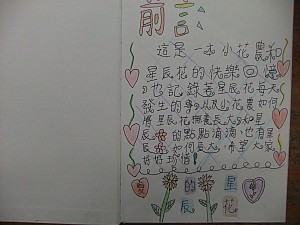 前言
這是一本小花農和
星辰花的快樂回憶
，也記錄著星辰花每天
發生的事，以及小花農如何
將星辰花撫養長大，如星
辰花的點點滴滴，也有星
辰花如何長大，希望大家
好好珍惜！
愛的星辰花